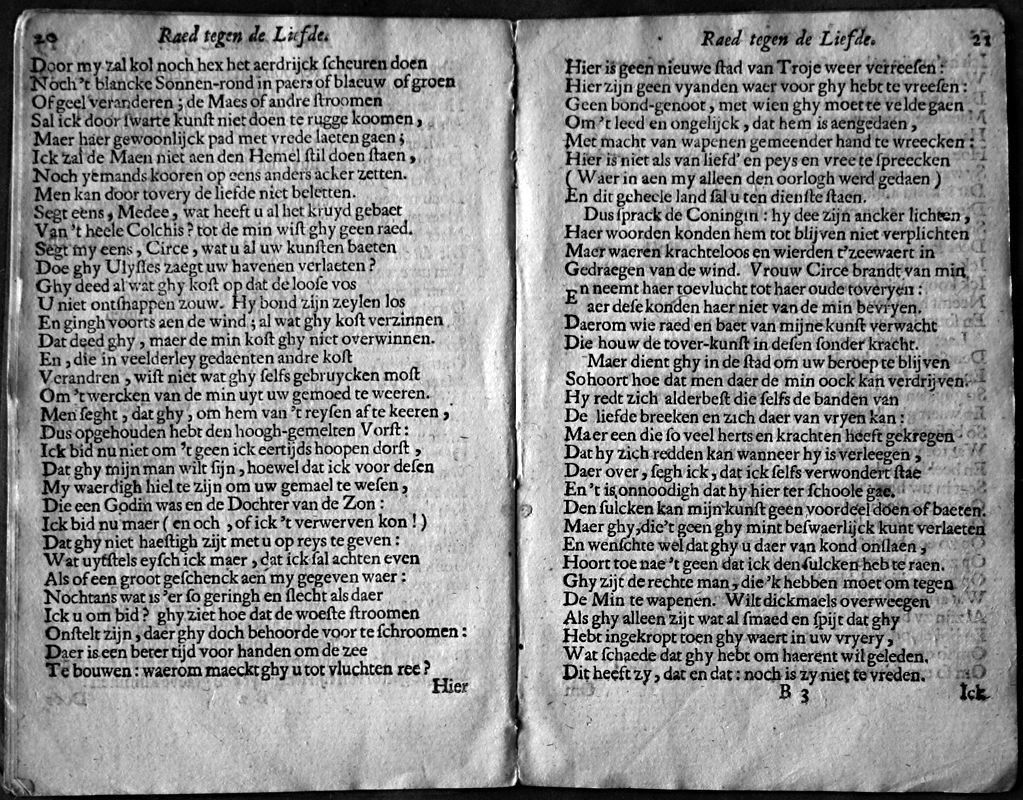 20 Raed tegen de Liefde.
Door my zal kol noch hex het aerdrijck ſcheuren doen
Noch 't blancke Sonnen-rond in paers of blaeuw of groen
Of geel veranderen ; de Maes of andre ſtroomen
Sal ick door ſwarte kunſt niet doen te rugge koomen ,
Maer haer gewoonlijck pad met vrede laeten gaen ;
Ick zal de Maen niet aen den Hemel ſtil doen ſtaen ,
Noch yemands kooren op eens anders acker zetten.
Men kan door tovery de liefde niet beletten.
Segt eens , Medee , wat heeft u al het kruyd gebaet
Van 't heele Colchis ? tot de min wiſt ghy geen raed.
Segt my eens , Circe , wat u al uw kunſten baeten
Doe ghy Ulyſſes zaegt uw havenen verlaeten ?
Ghy deed al wat ghy koſt op dat de looſe vos
U niet ontſnappen zouw. Hy bond zijn zeylen los
En gingh voorts aen de wind ; al wat ghy koſt verzinnen
Dat deed ghy , maer de min koſt ghy niet overwinnen.
En , die in veelderley gedaenten andre koſt
Verandren , wiſt niet wat ghy ſelfs gebruycken moſt
Om 't wercken van de min uyt uw gemoed te weeren.
Men ſeght , dat ghy , om hem van 't reyſen af te keeren ,
Dus opgehouden hebt den hoogh-gemelten Vorſt :
Ick bid nu niet om 't geen ick eertijds hoopen dorſt ,
Dat ghy mijn man wilt ſijn , hoewel dat ick voor deſen
My waerdigh hiel te zijn om uw gemael te weſen ,
Die een Godin was en de Dochter van de Zon :
Ick bid nu maer ( en och , of ick 't verwerven kon ! )
Dat ghy niet haeſtigh zijt met u op reys te geven :
Wat uytſtels eyſch ick maer , dat ick ſal achten even
Als of een groot geſchenck aen my gegeven waer :
Nochtans wat is 'er ſo geringh en ſlecht als daer
Ick u om bid ? ghy ziet hoe dat de woeſte ſtroomen
Onſtelt zijn , daer ghy doch behoorde voor te ſchroomen :
Daer is een beter tijd voor handen om de zee
Te bouwen : waerom maeckt ghy u tot vluchten ree ?
Hier
Raed tegen de Liefde. 21
Hier is geen nieuwe ſtad van Troje weer verreeſen :
Hier zijn geen vyanden waer voor ghy hebt te vreeſen :
Geen bond-genoot , met wien ghy moet te velde gaen
Om 't leed en ongelijck , dat hem is aengedaen ,
Met macht van wapenen gemeender hand te wreecken :
Hier is niet als van liefd' en peys en vree te ſpreecken
( Waer in aen my alleen den oorlogh werd gedaen )
En dit geheele land ſal u ten dienſte ſtaen.
Dus ſprack de Coningin : hy dee zijn ancker lichten ,
Haer woorden konden hem tot blijven niet verplichten
Maer waeren krachteloos en wierden t'zeewaert in
Gedraegen van de wind. Vrouw Circe brandt van min
En neemt haer toevlucht tot haer oude toveryen :
aer deſe konden haer niet van de min bevryen.
Daerom wie raed en baet van mijne kunſt verwacht
Die houw de tover-kunſt in deſen ſonder kracht.
Maer dient ghy in de ſtad om uw beroep te blijven
So hoort hoe dat men daer de min oock kan verdrijven.
Hy redt zich alderbeſt die ſelfs de banden van
De liefde breeken en zich daer van vryen kan :
Maer een die ſo veel herts en krachten heeft gekregen
Dat hy zich redden kan wanneer hy is verleegen ,
Daer over , ſegh ick , dat ick ſelfs verwondert ſtae
En 't is onnoodigh dat hy hier ter ſchoole gae.
Den ſulcken kan mijn kunſt geen voordeel doen of baeten.
Maer ghy, die 't geen ghy mint beſwaerlijck kunt verlaeten
En wenſchte wel dat ghy u daer van kond onſlaen ,
Hoort toe nae 't geen dat ick den ſulcken heb te raen.
Ghy zijt de rechte man , die 'k hebben moet om tegen
De Min te wapenen. Wilt dickmaels overweegen
Als ghy alleen zijt wat al ſmaed en ſpijt dat ghy
Hebt ingekropt toen ghy waert in uw vryery ,
Wat ſchaede dat ghy hebt om haerent wil geleden.
Dit heeft zy , dat en dat : noch is zy niet te vreden.
B 3 Ick